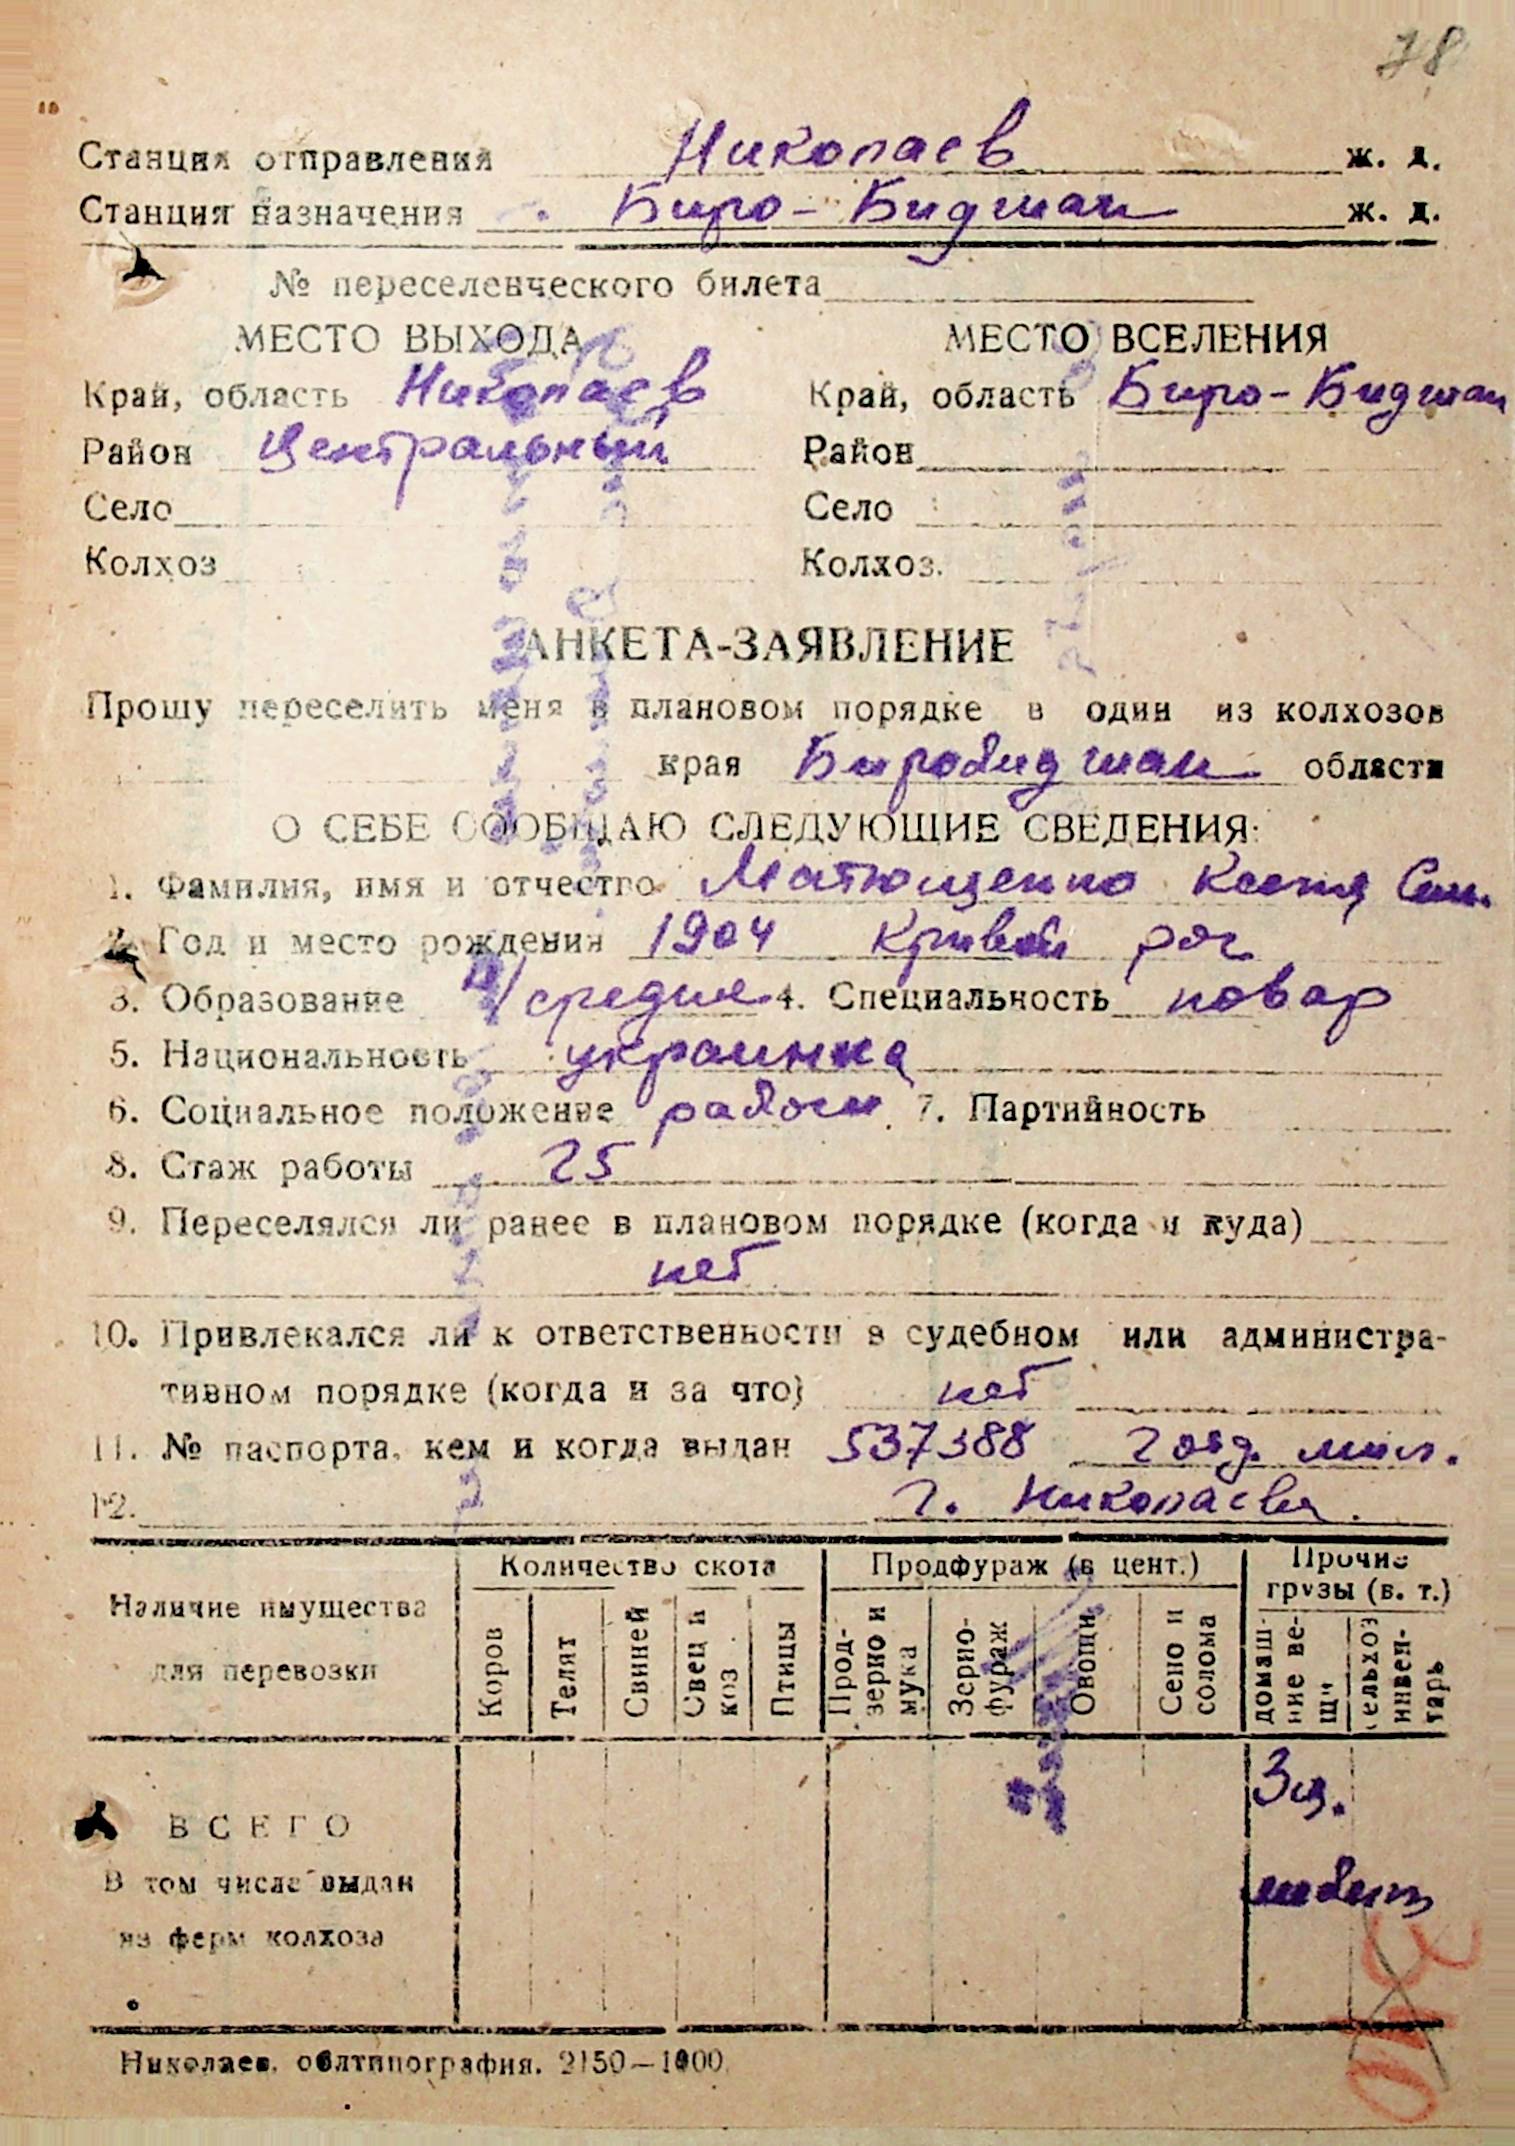 78
Станция отправления Николаев ж. д.
Станция назначения Биро-Биджан ж. д.
№ переселенческого билета
МЕСТО ВЫХОДА МЕСТО ВСЕЛЕНИЯ
Край, область Николаев Край, область Биро-Биджан
Район Центральный Район
Село Село
Колхоз Колхоз.
АНКЕТА-ЗАЯВЛЕНИЕ
Прошу переселить меня в плановом порядке в один из колхозов
края Биробиджан области
О СЕБЕ СООБЩАЮ СЛЕДУЮЩИЕ СВЕДЕНИЯ:
1. Фамилия, имя и отчество Матющенко Ксения Сем.
2. Год и место рождения 1904 Кривой рог
3. Образование н/средн. 4. Специальность повар
5. Национальность украинка
6. Социальное положение рабочи 7. Партийность
8. Стаж работы 25
9. Переселялся ли ранее в плановом порядке (когда и куда)
нет
10. Привлекался ли к ответственности в судебном или администра-
тивном порядке (когда и за что) нет
11. № паспорта, кем и когда выдан 537388 2 отд. мил.
12. г. Николаева.
Наличие имущества для перевозки
Количество скота
Продфураж (в цент.)
Прочие грузы (в. т.)
Коров
Телят
Свиней
Овец и коз
Птицы
Прод-зерно и мука
Зерно-фураж
Овощи
Сено и солома
домаш-ние ве-щи
сельхоз инвен-тарь
ВСЕГО 3ц.
В том числе выдан
из ферм колхоза
Николаев, облтипография. 2150—1000